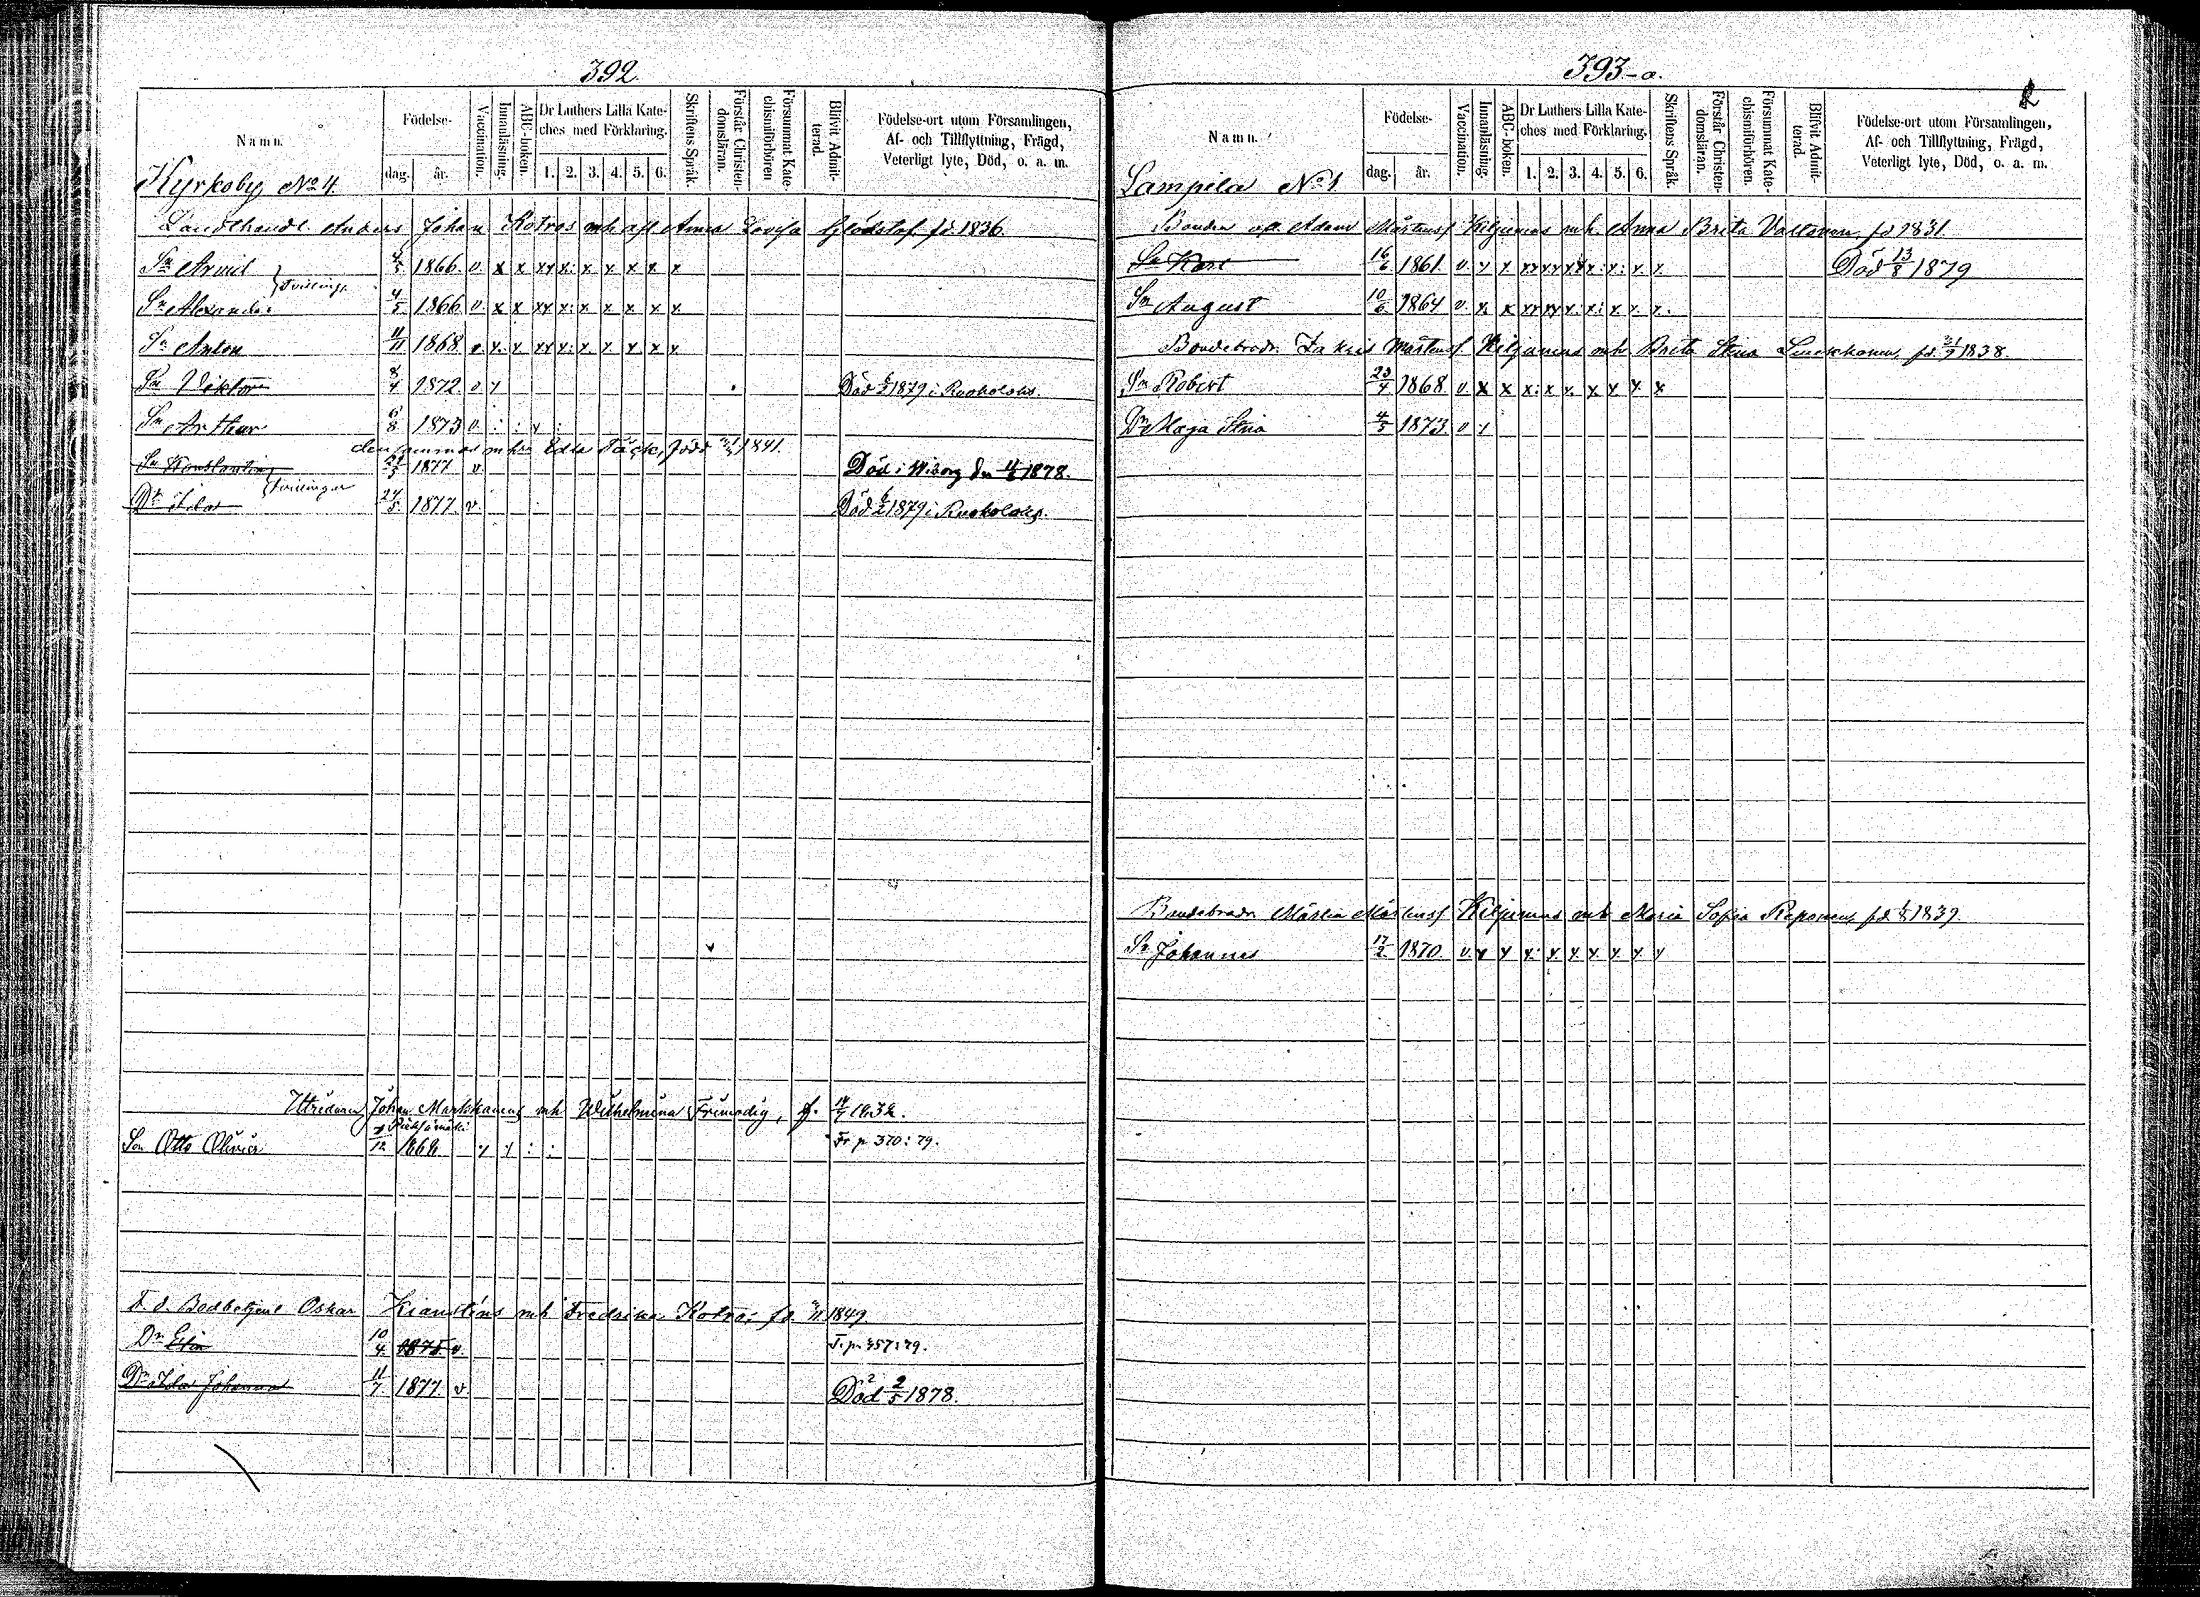 392
Namn.
Födelse-
dag.
år.
Vaccination.
Innanläsning.
ABC-boken.
Dr Luthers Lilla Kate-
ches med Förklaring.
1. 2. 3. 4. 5. 6.
Skriftens Språk.
Förstår Christen-
domsläran.
Försummat Kate-
chismiförhören
Blifvit Admit-
terad.
Födelse-ort utom Församlingen,
Af- och Tillflyttning, Frägd,
Veterligt lyte, Död, o. a. m.
Kyrkoby No 4.
Landthandl. Anders Johan Kotros mh afl. Anna Lovisa fd. 1836.
Sn Arvid 4/5 1866 v. x x xx x: x x x x x
Tvillingr
Sn Alexander 4/5 1866 v. x x xx x: x x x x x
Sn Anton 11/11 1868 v. x. x xx x: x. x x. x x
Sn Viktor 8/4 1872 v x Död 6/2 1879 i Ruokolaks.
Sn Arthur 6/8 1873 v. : : x :
densammes mhu Edla Täck, född 1841.
Sn Konstantin 1877 v Död i Wiborg den 4/3 1878.
Tvillingar
Dr Ida 24/5 1877 v Död 6/2 1879 i Ruokolaks.
Johan Markkanens mh Wilhelmina Frimodig, f.
Son Otto Olivier 1868 x x : : Fr p 370: 79.
F. d. Oskar mh Fredrika Kotros fd. 1849
Dr Elin 10/4 1875 v. T. p. 357: 79.
Dr Ida Johanna 11/7 1877 v Död 2/5 1878.
393-a.
Namn.
Födelse-
dag.
år.
Vaccination.
Innanläsning.
ABC-boken.
Dr Luthers Lilla Kate-
ches med Förklaring.
1. 2. 3. 4. 5. 6.
Skriftens Språk.
Förstår Christen-
domsläran.
Försummat Kate-
chismiförhören.
Blifvit Admit-
terad.
Födelse-ort utom Församlingen,
Af- och Tillflyttning, Frägd,
Veterligt lyte, Död, o. a. m.
Lampila No 1
Bonden Adam Mårtensf Kiljunens mh. Anna Brita Valtonen fd 1831.
Sn Karl 16/6 1861 v. x x xx xx xx x: x: x. x. Död 13/8 1879
Sn August 10/6 1864 v. x. x xx xx x: x: x. x. x.
Bondebrodr. Zakris Mårtensf Kiljunens mh Brita Stina fd. 1838.
Sn Robert 23/4 1868 v. x x x: x x. x. x x x
Dr Maja Stina 4/5 1873 v x
Bondebrodr. Mårtin Mårtensf Kiljunens mh Maria Sofia Reponen, fd. 1839.
Sn Johannes 17/2 1870 v. x x x: x. x. x. x. x. x